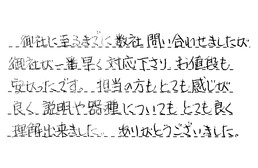 御社に至るまでに数社問い合わせましたが
御社が一番早く対応下さり お値段も
安かったです。 担当の方もとても感じが
良く 説明や器種についても とても良く
理解出来ました。 ありがとうございました。